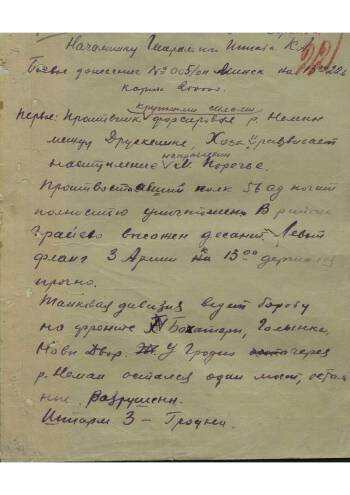 Начальнику Генеральн Штаба КА
221
Боевое донесение № 005/оп Минск на 13 00 22.6
Карта 200000.
крупными силами
Первое: Противник форсировав р. Неман
между Друскенике, Хожа и развивает
направлении
наступление м. Поречье.
Противостоящий полк 56 сд почти
полностью уничтожен. В районе
высажен десант. Левый
фланг 3 Армии на 13 00 держался
прочно.
Танковая дивизия ведет борьбу
на фронте Богатыри, Голынка,
Новы Двор. У Гродно через
р. Неман остался один мост, осталь
ные разрушены.
Штарм 3 – Гродно.